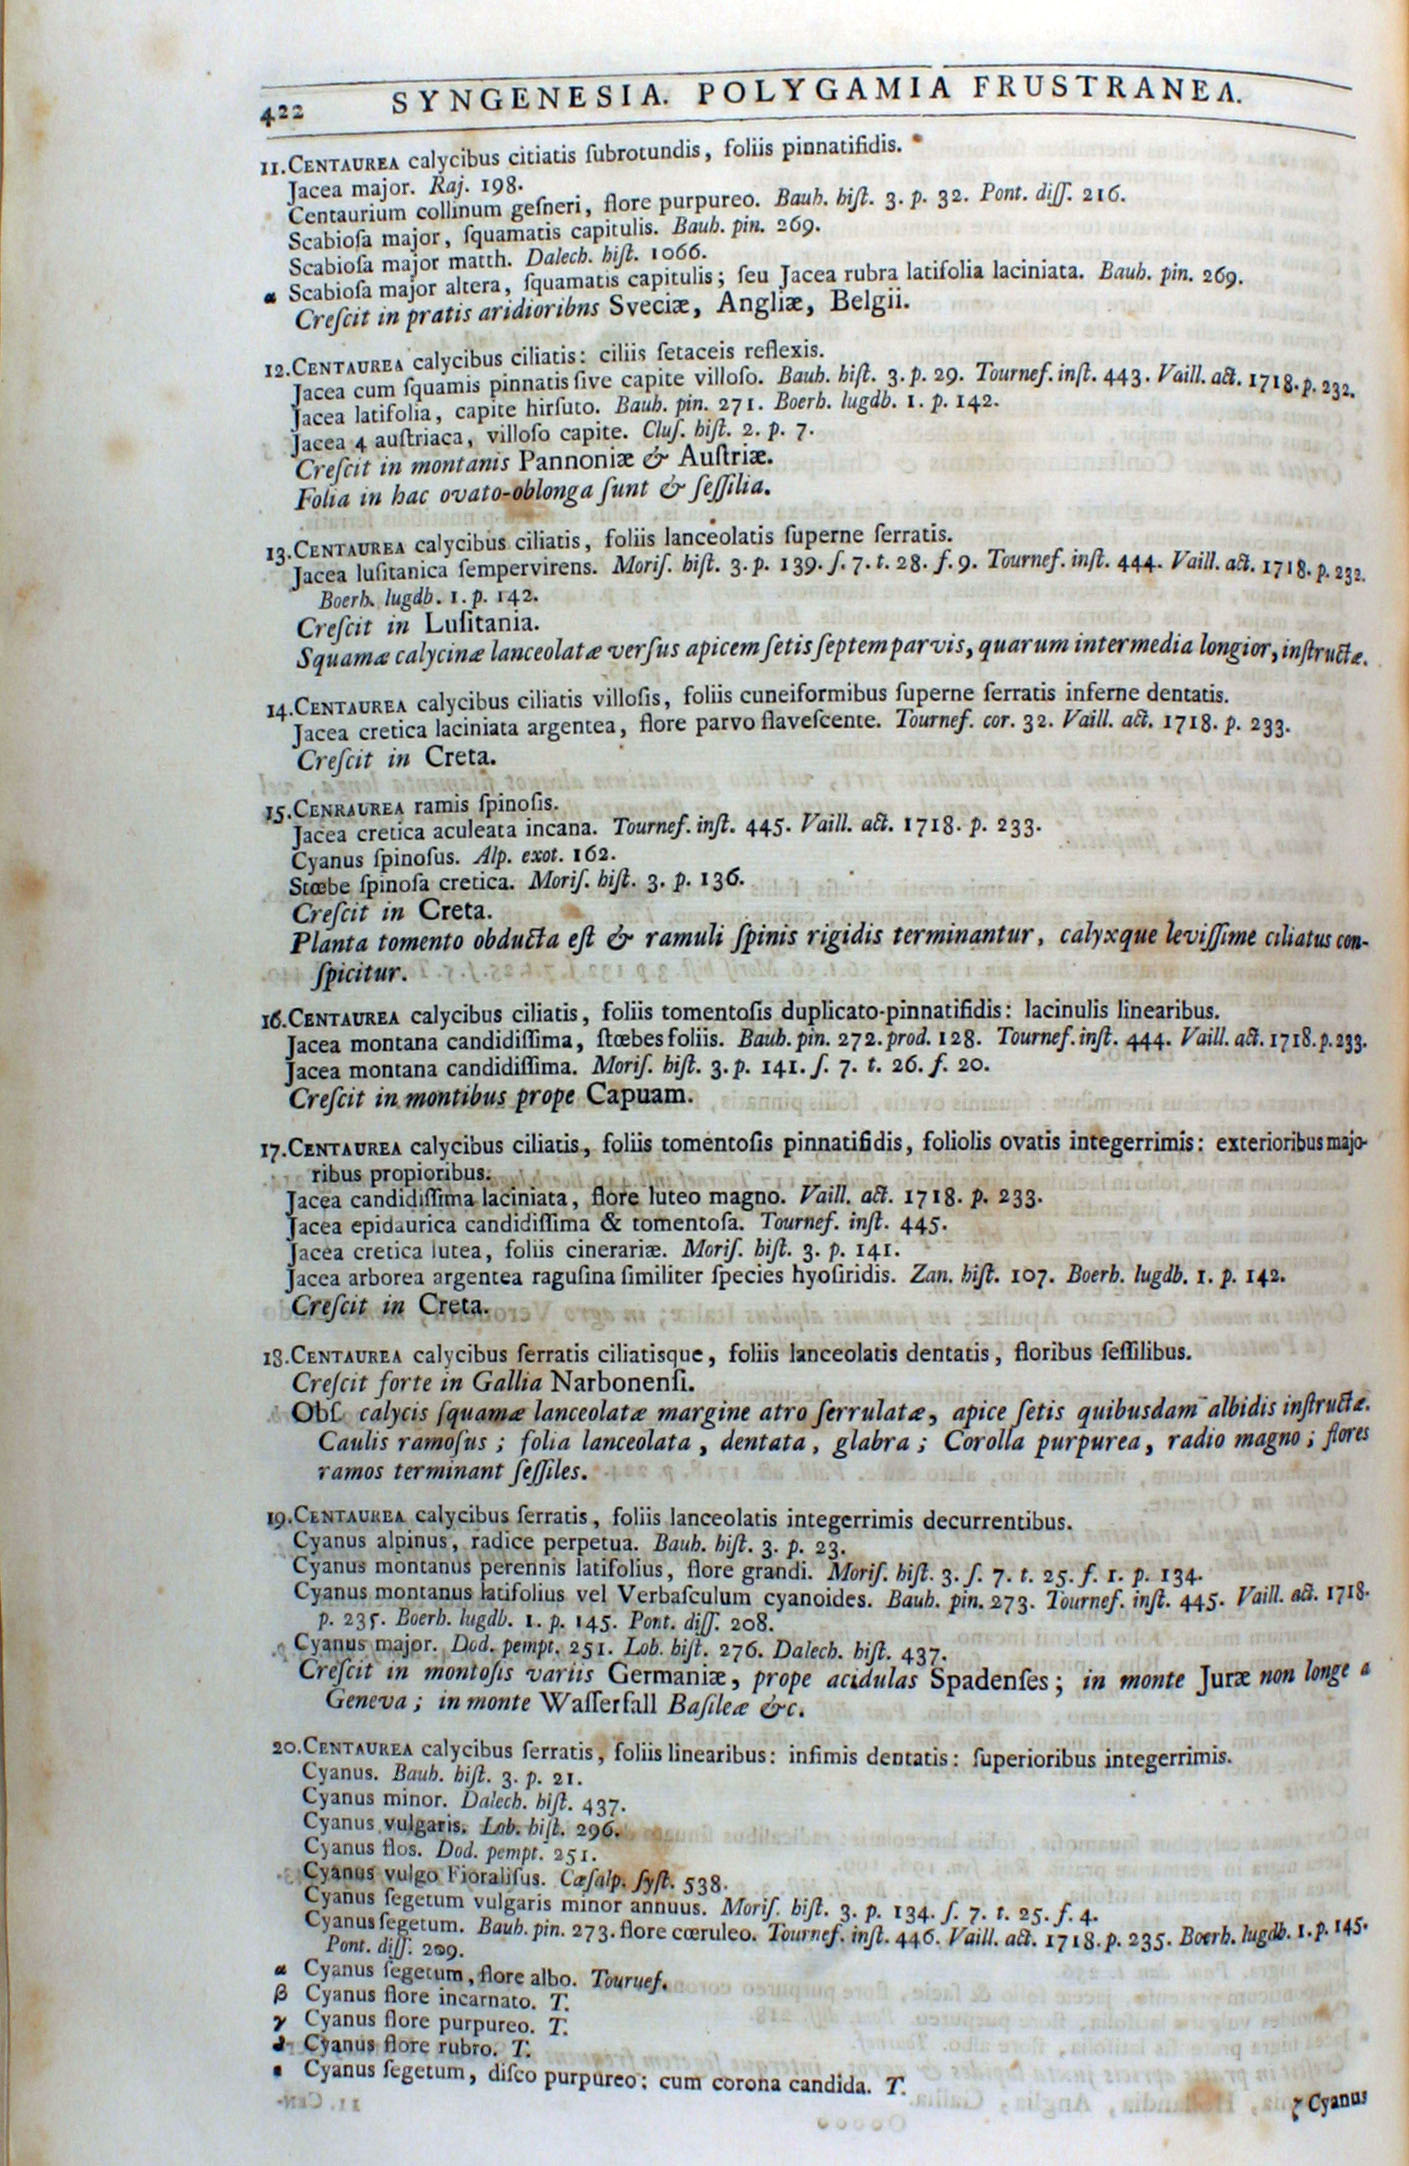 422 SYNGENESIA. POLYGAMIA FRUSTRANEA.
11.CENTAUREA calycibus citiatis ſubrotundis, foliis pinnatifidis.
Jacea major. Raj. 198.
Centaurium collinum geſneri, flore purpureo. Bauh. hiſt. 3. p. 32. Pont. diſſ. 216.
Scabioſa major, ſquamatis capitulis. Bauh. pin. 269.
Scabioſa major matth. Dalech. hiſt. 1066.
α Scabioſa major altera, ſquamatis capitulis; ſeu Jacea rubra latifolia laciniata. Bauh. pin. 269.
Creſcit in pratis aridioribns Sveciæ, Angliæ, Belgii.
12.CENTAUREA calycibus ciliatis: ciliis ſetaceis reflexis.
Jacea cum ſquamis pinnatis ſive capite villoſo. Bauh. hiſt. 3. p. 29. Tournef. inſt. 443. Vaill. act. 1718. p. 232.
Jacea latifolia, capite hirſuto. Bauh. pin. 271. Boerh. lugdb. 1. p. 142.
Jacea 4 auſtriaca, villoſo capite. Cluſ. hiſt. 2. p. 7.
Creſcit in montanis Pannoniæ & Auſtriæ.
Folia in hac ovato-oblonga ſunt & ſeſſilia.
13.CENTAUREA calycibus ciliatis, foliis lanceolatis ſuperne ſerratis.
Jacea luſitanica ſempervirens. Moriſ. hiſt. 3. p. 139. ſ. 7. t. 28. f. 9. Tournef. inſt. 444. Vaill. act. 1718. p. 232.
Boerh. lugdb. 1. p. 142.
Creſcit in Luſitania.
Squamæ calycinæ lanceolatæ verſus apicem ſetis ſeptem parvis, quarum intermedia longior, inſtructæ.
14.CENTAUREA calycibus ciliatis villoſis, foliis cuneiformibus ſuperne ſerratis inferne dentatis.
Jacea cretica laciniata argentea, flore parvo flaveſcente. Tournef. cor. 32. Vaill. act. 1718. p. 233.
Creſcit in Creta.
15.CENRAUREA ramis ſpinoſis.
Jacea cretica aculeata incana. Tournef. inſt. 445. Vaill. act. 1718. p. 233.
Cyanus ſpinoſus. Alp. exot. 162.
Stœbe ſpinoſa cretica. Moriſ. hiſt. 3. p. 136.
Creſcit in Creta.
Planta tomento obducta eſt & ramuli ſpinis rigidis terminantur, calyxque leviſſime ciliatus con-
ſpicitur.
16.CENTAUREA calycibus ciliatis, foliis tomentoſis duplicato-pinnatifidis: lacinulis linearibus.
Jacea montana candidiſſima, ſtœbes foliis. Bauh. pin. 272. prod. 128. Tournef. inſt. 444. Vaill. act. 1718. p. 233.
Jacea montana candidiſſima. Moriſ. hiſt. 3. p. 141. ſ. 7. t. 26. f. 20.
Creſcit in montibus prope Capuam.
17.CENTAUREA calycibus ciliatis, foliis tomentoſis pinnatifidis, foliolis ovatis integerrimis: exterioribus majo-
ribus propioribus.
Jacea candidiſſima laciniata, flore luteo magno. Vaill. act. 1718. p. 233.
Jacea epidaurica candidiſſima & tomentoſa. Tournef. inſt. 445.
Jacea cretica lutea, foliis cinerariæ. Moriſ. hiſt. 3. p. 141.
Jacea arborea argentea raguſina ſimiliter ſpecies hyoſiridis. Zan. hiſt. 107. Boerh. lugdb. 1. p. 142.
Creſcit in Creta.
18.CENTAUREA calycibus ſerratis ciliatisque, foliis lanceolatis dentatis, floribus ſeſſilibus.
Creſcit forte in Gallia Narbonenſi.
Obſ. calycis ſquamæ lanceolatæ margine atro ſerrulatæ, apice ſetis quibusdam albidis inſtructæ.
Caulis ramoſus; folia lanceolata, dentata, glabra; Corolla purpurea, radio magno; flores
ramos terminant ſeſſiles.
19.CENTAUREA calycibus ſerratis, foliis lanceolatis integerrimis decurrentibus.
Cyanus alpinus, radice perpetua. Bauh. hiſt. 3. p. 23.
Cyanus montanus perennis latifolius, flore grandi. Moriſ. hiſt. 3. ſ. 7. t. 25. f. 1. p. 134.
Cyanus montanus latifolius vel Verbaſculum cyanoides. Bauh. pin. 273. Tournef. inſt. 445. Vaill. act. 1718.
p. 235. Boerh. lugdb. 1. p. 145. Pont. diſſ. 208.
Cyanus major. Dod. pempt. 251. Lob. hiſt. 276. Dalech. hiſt. 437.
Creſcit in montoſis variis Germaniæ, prope acidulas Spadenſes; in monte Juræ non longe a
Geneva; in monte Waſſerfall Baſileæ &c.
20.CENTAUREA calycibus ſerratis, foliis linearibus: infimis dentatis: ſuperioribus integerrimis.
Cyanus. Bauh. hiſt. 3. p. 21.
Cyanus minor. Dalech. hiſt. 437.
Cyanus vulgaris. Lob. hiſt. 296.
Cyanus flos. Dod. pempt. 251.
Cyanus vulgo Fioraliſus. Cæſalp. ſyſt. 538.
Cyanus ſegetum vulgaris minor annuus. Moriſ. hiſt. 3. p. 134. ſ. 7. t. 25. f. 4.
Cyanus ſegetum. Bauh. pin. 273. flore cœruleo. Tournef. inſt. 446. Vaill. act. 1718. p. 235. Boerh. lugdb. 1. p. 145.
Pont. diſſ. 209.
α Cyanus ſegetum, flore albo. Touruef.
β Cyanus flore incarnato. T.
γ Cyanus flore purpureo. T.
δ Cyanus flore rubro. T.
ε Cyanus ſegetum, diſco purpureo: cum corona candida. T.
ζ Cyanus